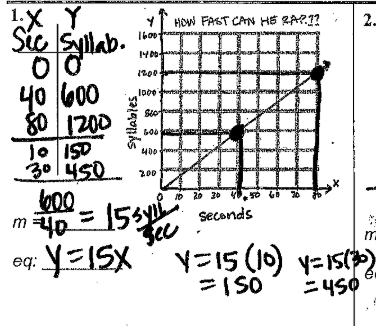 1. X Y
Sec Syllab.
0 0
40 600
80 1200
10 150
30 450
m = 600/40 = 15 syll/sec
eq: Y=15X
Y HOW FAST CAN HE RAP??
1600
1400
1200
1000
800
600
400
200
syllables
0 10 20 30 40 50 60 70 80 X
seconds
Y=15(10)
=150
Y=15(30)
=450
2.
m